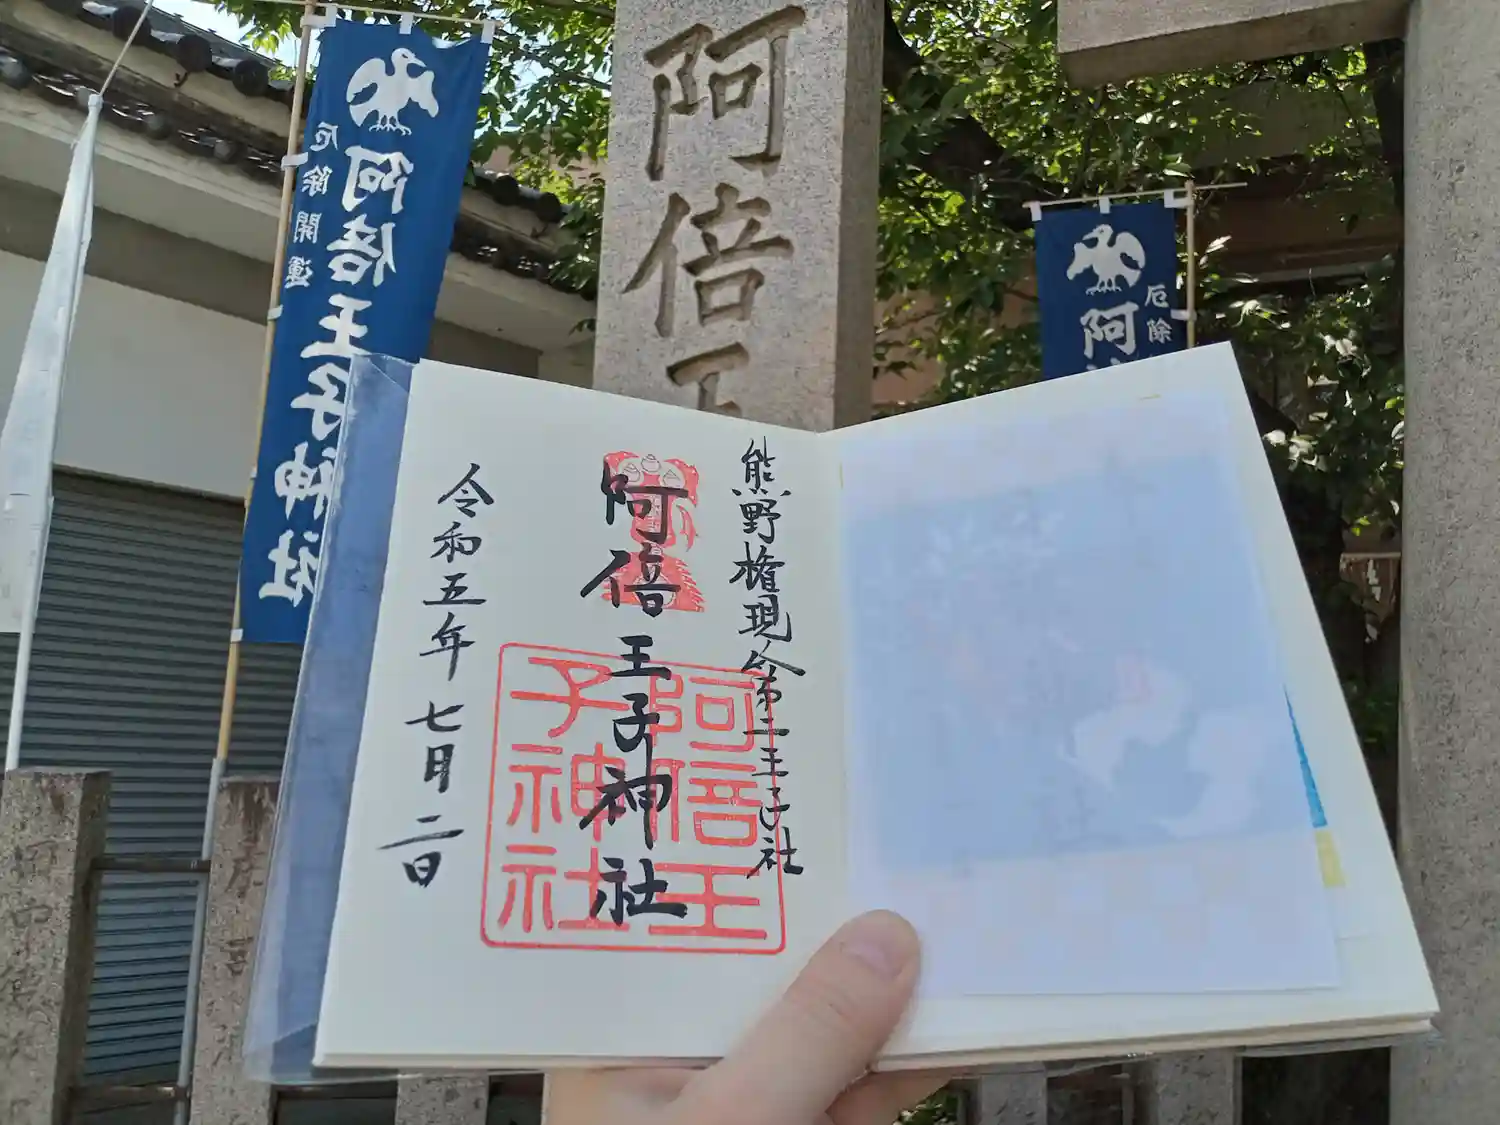 阿倍王子神社
厄除開運
阿倍王
阿
厄除
熊野権現第二王子社
阿倍王子神社
令和五年七月二日
阿倍王
子神社